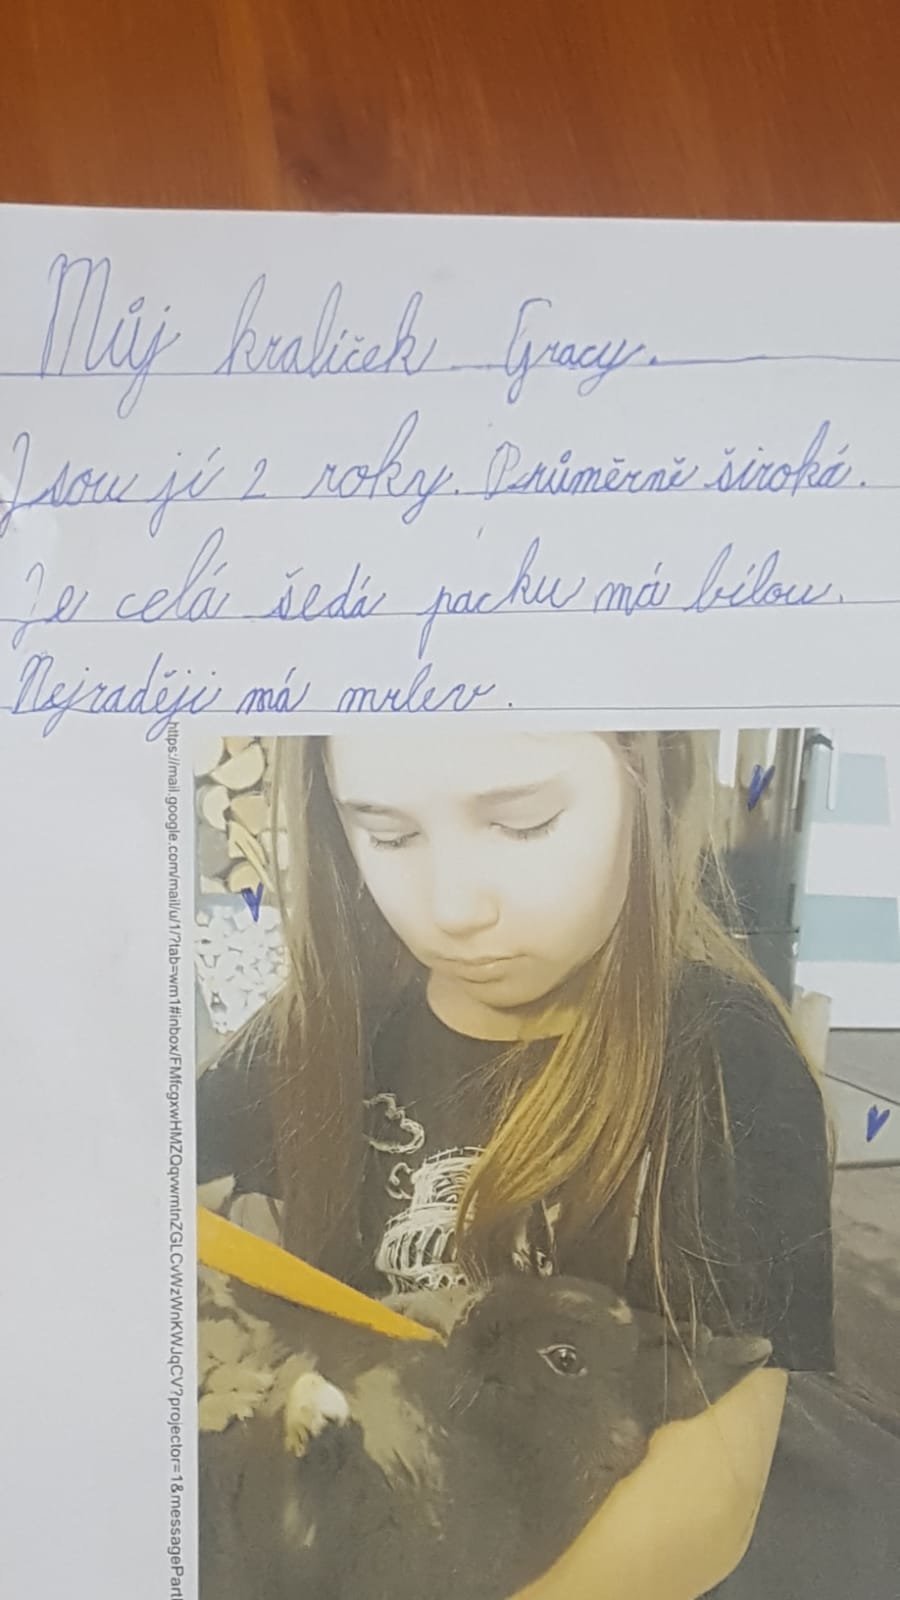 Můj kralíček Gracy.
Jsou jí 2 roky. Průměrně široká.
Je celá šedá packu má bílou.
Nejraději má mrkev.
https://mail.google.com/mail/u/1/?tab=wm1#inbox/FMfcgxwHMZQqvwmtnZGLCvWzWnKWJqCV?projector=1&messagePartI